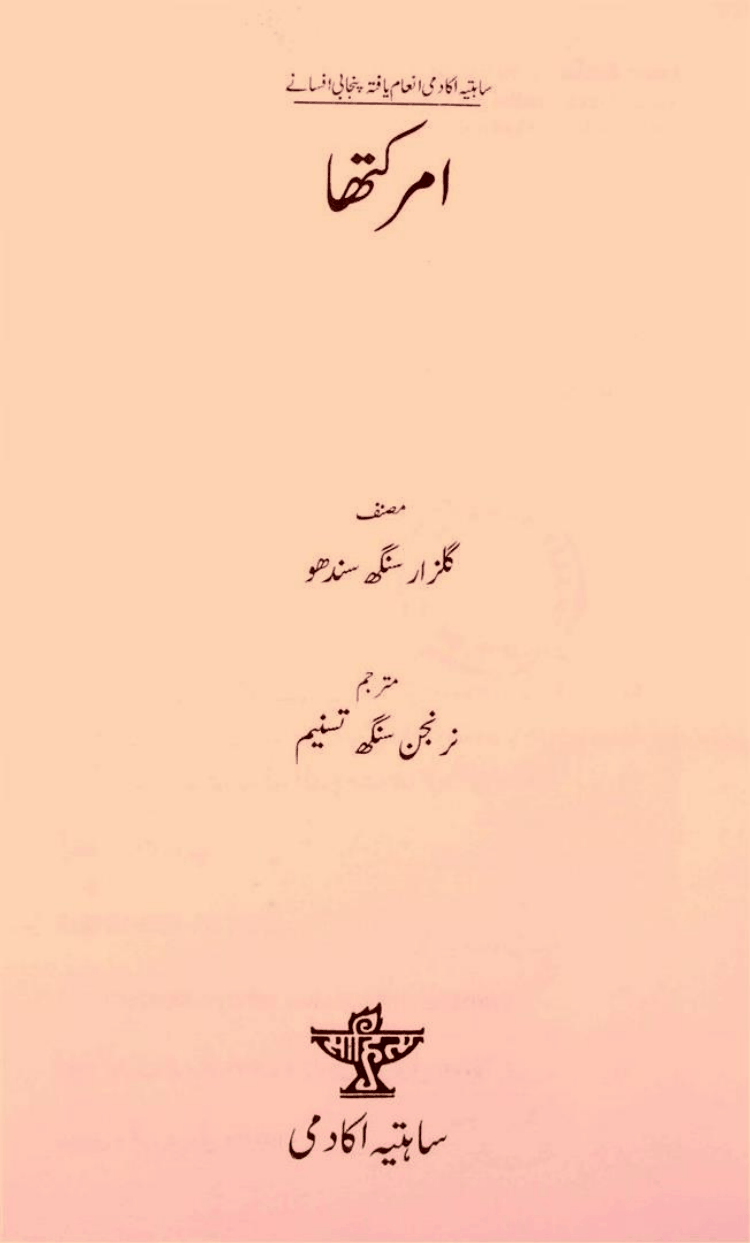 ساہتیہ اکادمی انعام یافتہ پنجابی افسانے
امر کتھا
مصنف
گلزار سنگھ سندھو
مترجم
نرنجن سنگھ تسنیم
साहित्य
ساہتیہ اکادمی